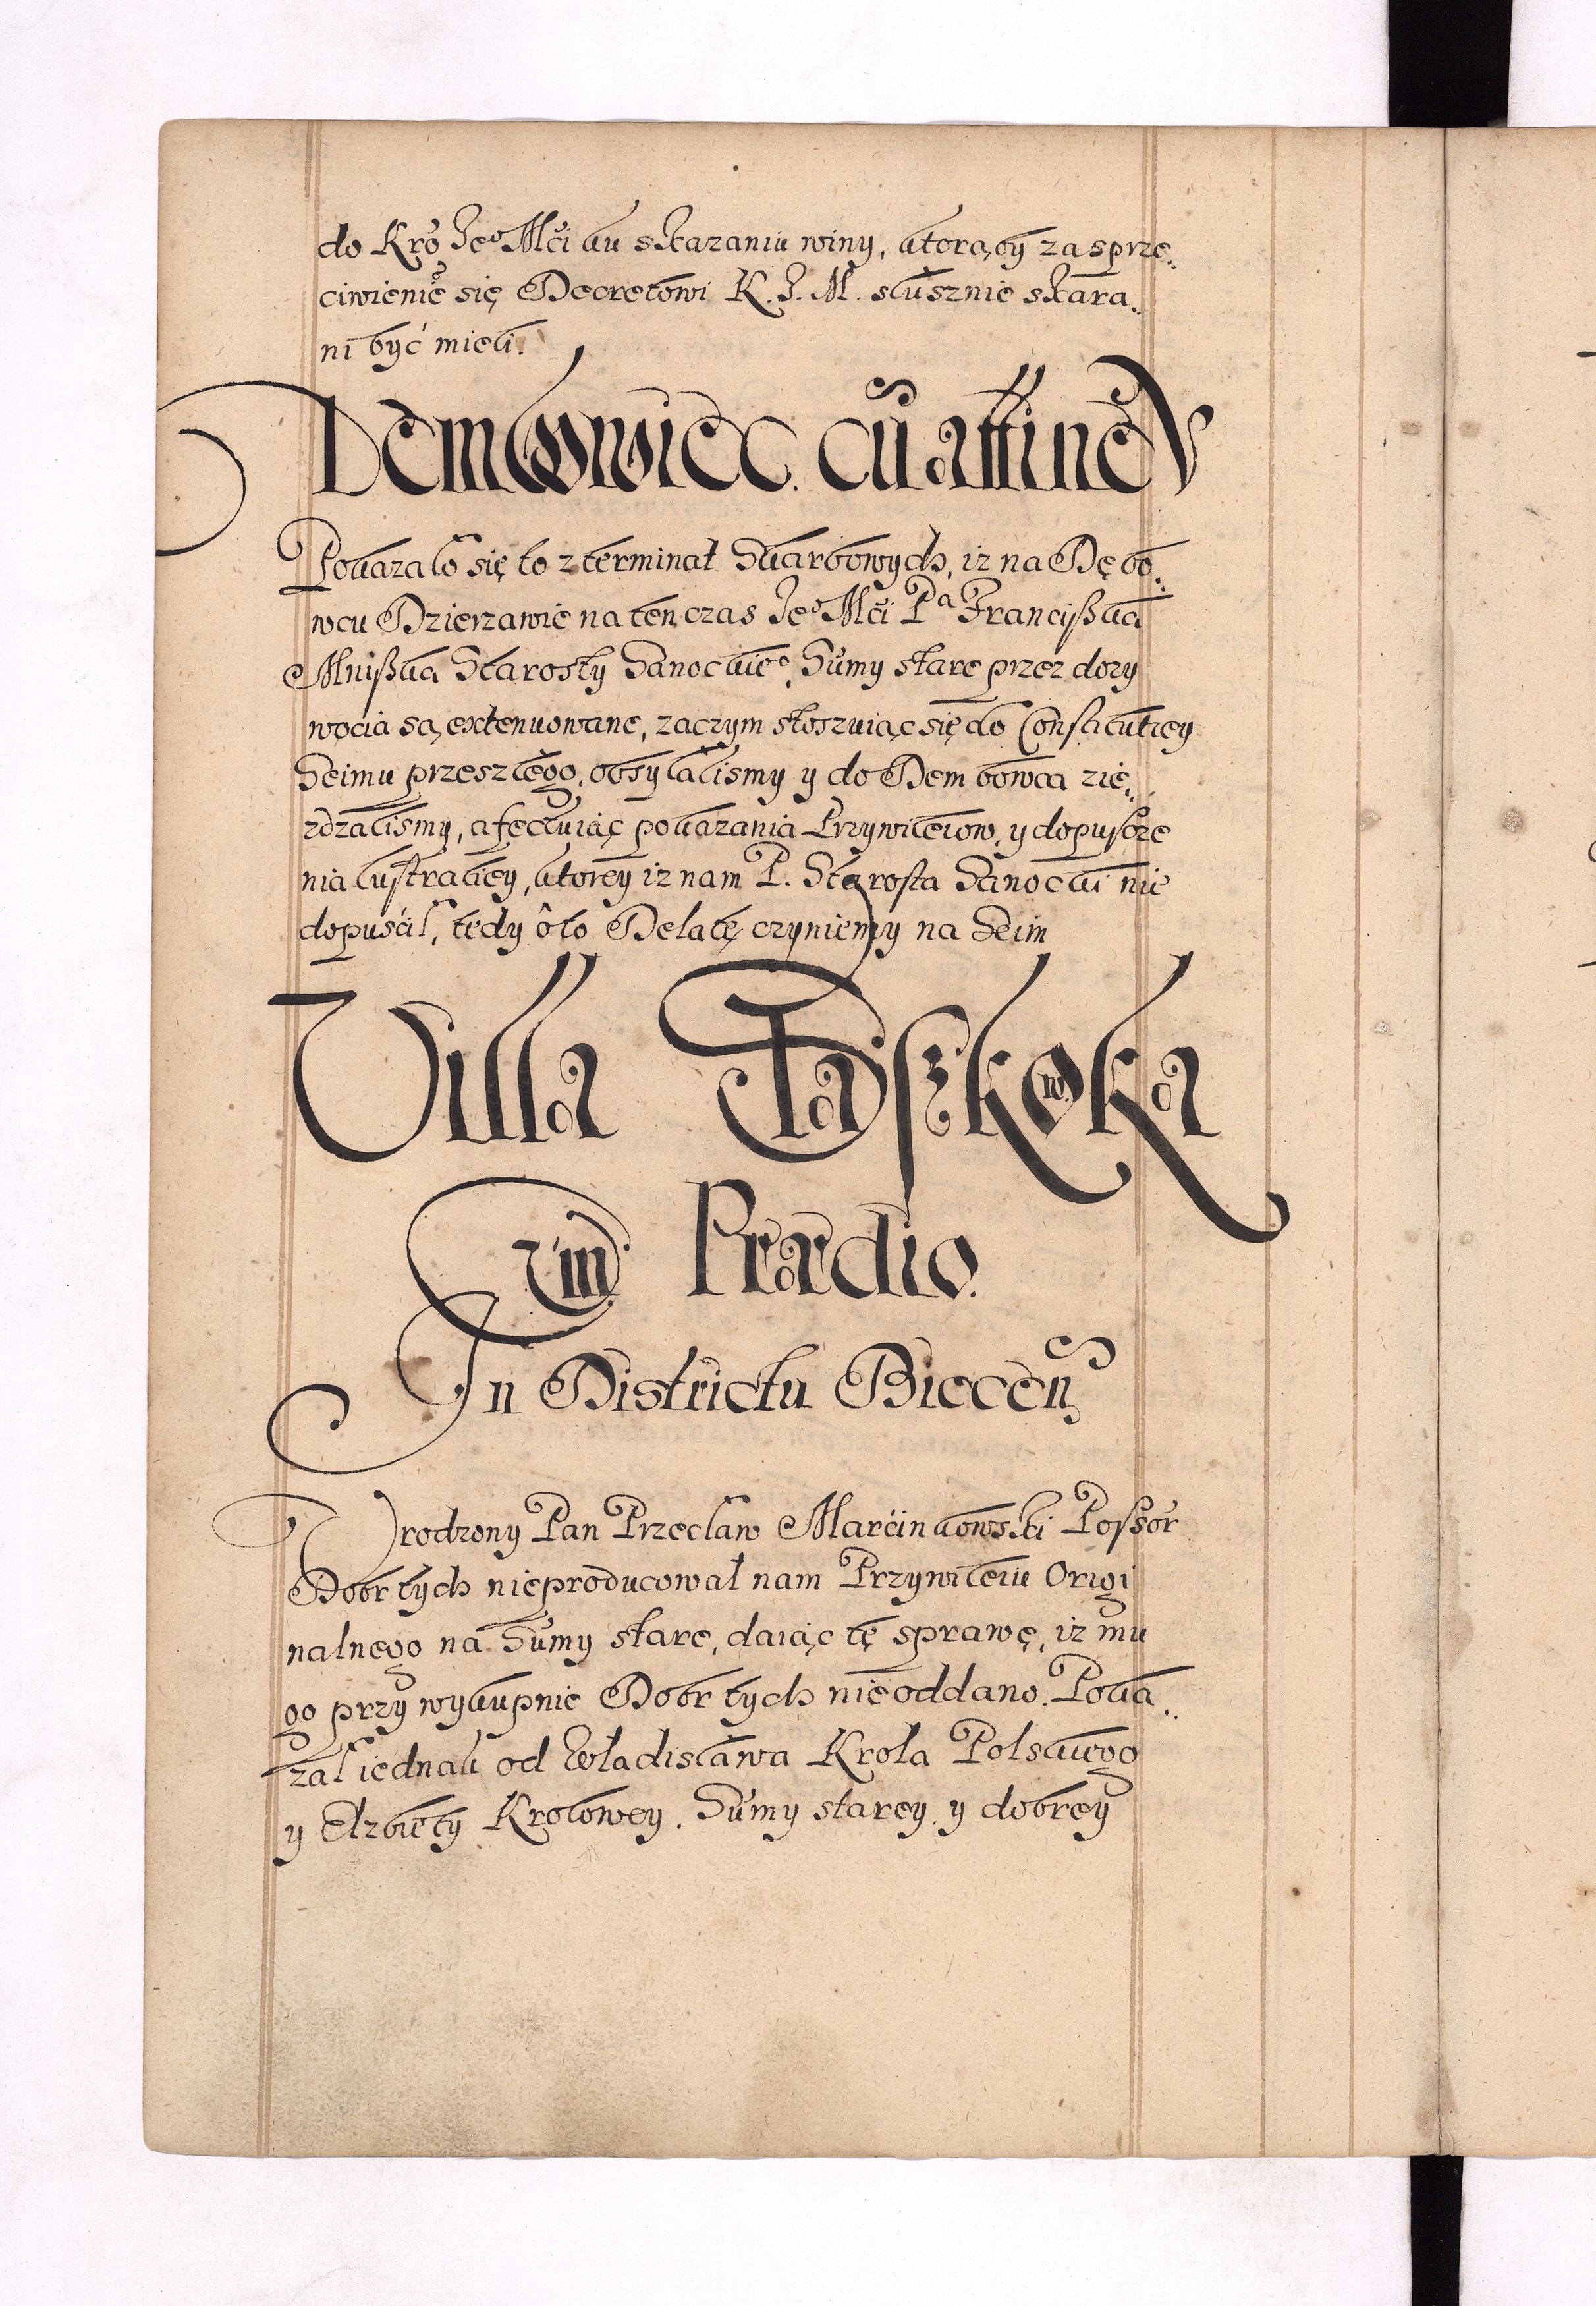 do Kro Jeº Mći ku skazaniu winy, ktorąby za sprze
ciwienie się Decretowi K. J. M. słusznie skara
ni być mieli.
Dembowiec cu attinen
Pokazało się to z terminat Skarbowych, iz na Dębo
wcu Dzierzawie na ten czas Jeº Mći Pª Franciszka
Mniszka Starosty Sanockieº, Sumy stare przez dozy
wocia są extenuowane, zaczym stoszuiąc się do Constitutiey
Seimu przeszłego, obsyłalismy y do Dembowca zie
zdzalismy, afectuiąc pokazania Przywileiow, y dopuszcze
nia lustratiey, ktorey iz nam P. Starosta Sanocki nie
dopuścił, tedy oto Delatę czyniemy na Seim
Villa Faszkowka
cum Prædio.
In Districtu Biecen
Urodzony Pan Przecław Marcinkowski Possor
Dobr tych nieproducował nam Przywileiu Origi
nalnego na Sumy stare, daiąc tę sprawę, iz mu
go przy wykupnie Dobr tych nie oddano. Poka
zał iednak od Władisława Krola Polskiego
y Elzbiety Krolowey. Sumy starey y dobrey